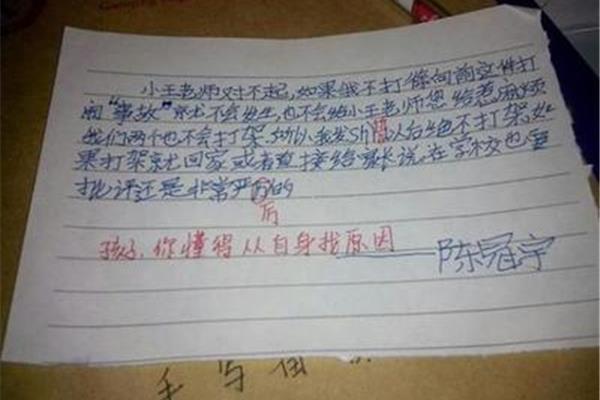 小王老师对不起,如果俄不打 向前这件打
闹“事故”就不会发生,也不会给小王老师您给惹麻烦
我们两个也不会打架.所以,我发Sh 以后绝不打架,如
果打架就回家或者直接给家长说.在学校也
批评还是非常严 的
厉
孩子,你懂得从自身找原因
陈冠宇